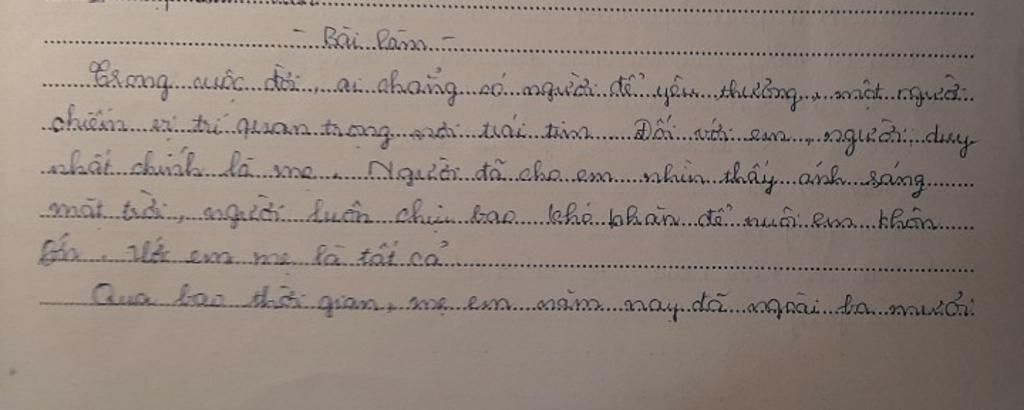 - Bài làm -
Trong cuộc đời, ai chẳng có người để yêu thương, một người
chiếm vị trí quan trọng nơi trái tim Đối với em, người duy
nhất chính là mẹ. Người đã cho em nhìn thấy ánh sáng
mặt trời, người luôn chịu bao khó khăn để nuôi em khôn
lớn. Với em mẹ là tất cả
Qua bao thời gian, mẹ em năm nay đã ngoài ba mươi